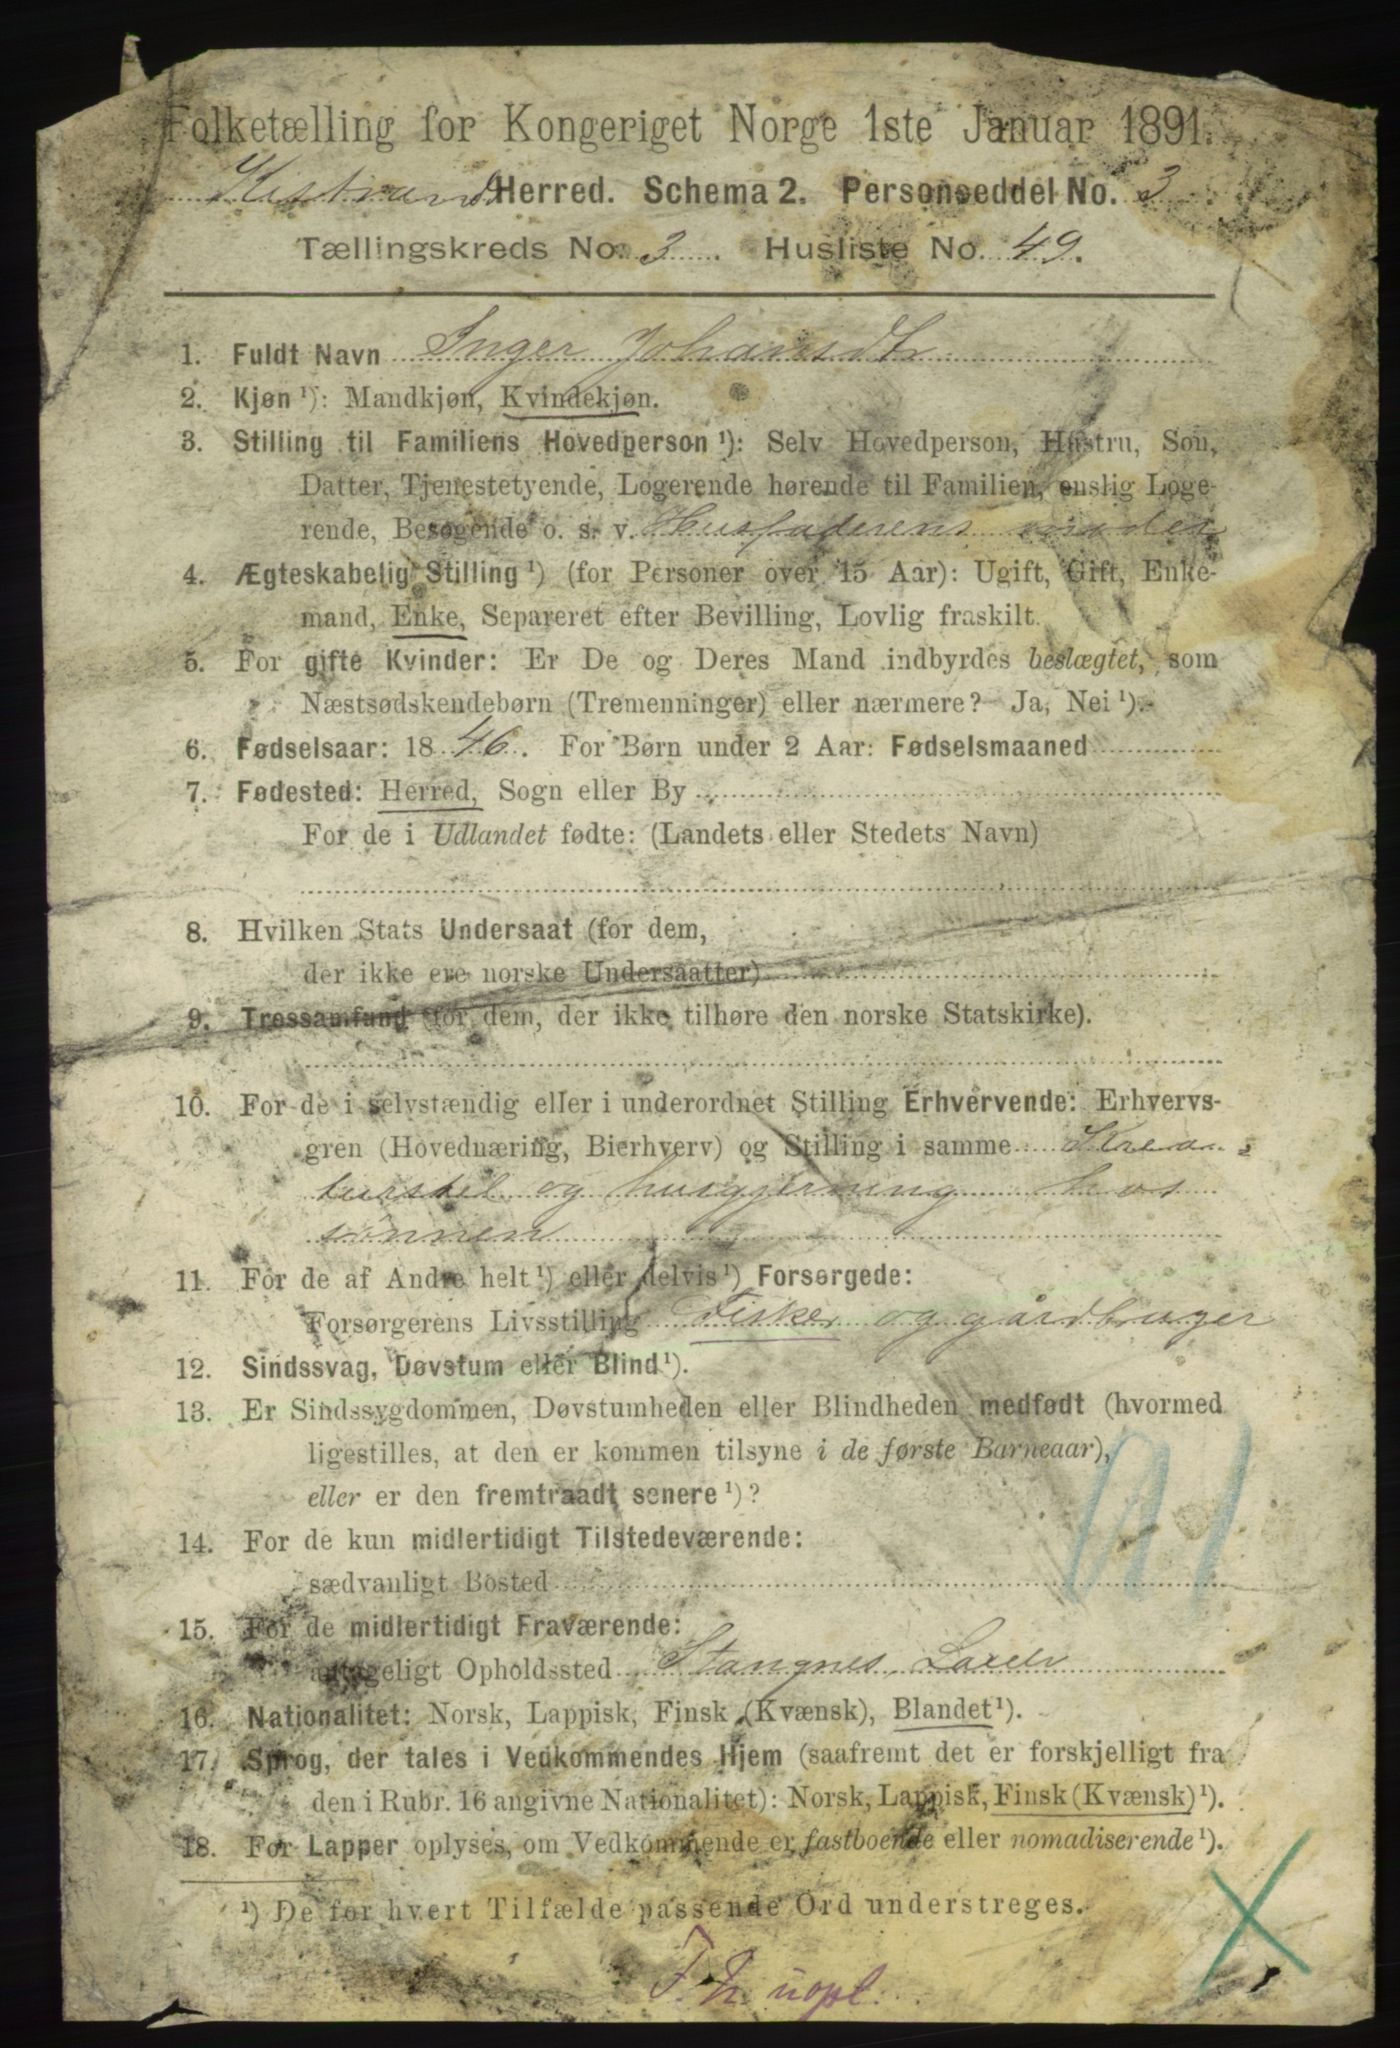 Folketælling for Kongeriget Norge 1ste Januar 1891.
Kistrand Herred. Schema 2. Personseddel No. 3.
Tællingskreds No. 3. Husliste No. 49.
1. Fuldt Navn Inger Johansdtr
2. Kjøn ¹): Mandkjøn, Kvindekjøn.
3. Stilling til Familiens Hovedperson ¹): Selv Hovedperson, Hustru, Søn,
Datter, Tjenestetyende, Logerende hørende til Familien, enslig Loge-
rende, Besøgende o. s. v. Husfaderens moder
4. Ægteskabelig Stilling ¹) (for Personer over 15 Aar): Ugift, Gift, Enke-
mand, Enke, Separeret efter Bevilling, Lovlig fraskilt.
5. For gifte Kvinder: Er De og Deres Mand indbyrdes beslægtet, som
Næstsødskendebørn (Tremenninger) eller nærmere? Ja, Nei ¹).
6. Fødselsaar: 1846. For Børn under 2 Aar: Fødselsmaaned
7. Fødested: Herred, Sogn eller By
For de i Udlandet fødte: (Landets eller Stedets Navn)
8. Hvilken Stats Undersaat (for dem,
der ikke ere norske Undersaatter)
9. Trossamfund (for dem, der ikke tilhøre den norske Statskirke).
10. For de i selvstændig eller i underordnet Stilling Erhvervende: Erhvervs-
gren (Hovednæring, Bierhverv) og Stilling i samme Krea=
turstel og husgjerning hos
sønnen
11. For de af Andre helt ¹) eller delvis ¹) Forsørgede:
Forsørgerens Livsstilling Fisker og gårdbruger
12. Sindssvag, Døvstum eller Blind ¹).
13. Er Sindssygdommen, Døvstumheden eller Blindheden medfødt (hvormed
ligestilles, at den er kommen tilsyne i de første Barneaar),
eller er den fremtraadt senere ¹)?
14. For de kun midlertidigt Tilstedeværende:
sædvanligt Bosted
15. For de midlertidigt Fraværende:
antageligt Opholdssted Stangnes, Laxelv
16. Nationalitet: Norsk, Lappisk, Finsk (Kvænsk), Blandet ¹).
17. Sprog, der tales i Vedkommendes Hjem (saafremt det er forskjelligt fra
den i Rubr. 16 angivne Nationalitet): Norsk, Lappisk, Finsk (Kvænsk) ¹).
18. For Lapper oplyses, om Vedkommende er fastboende eller nomadiserende ¹).
¹) De for hvert Tilfælde passende Ord understreges.